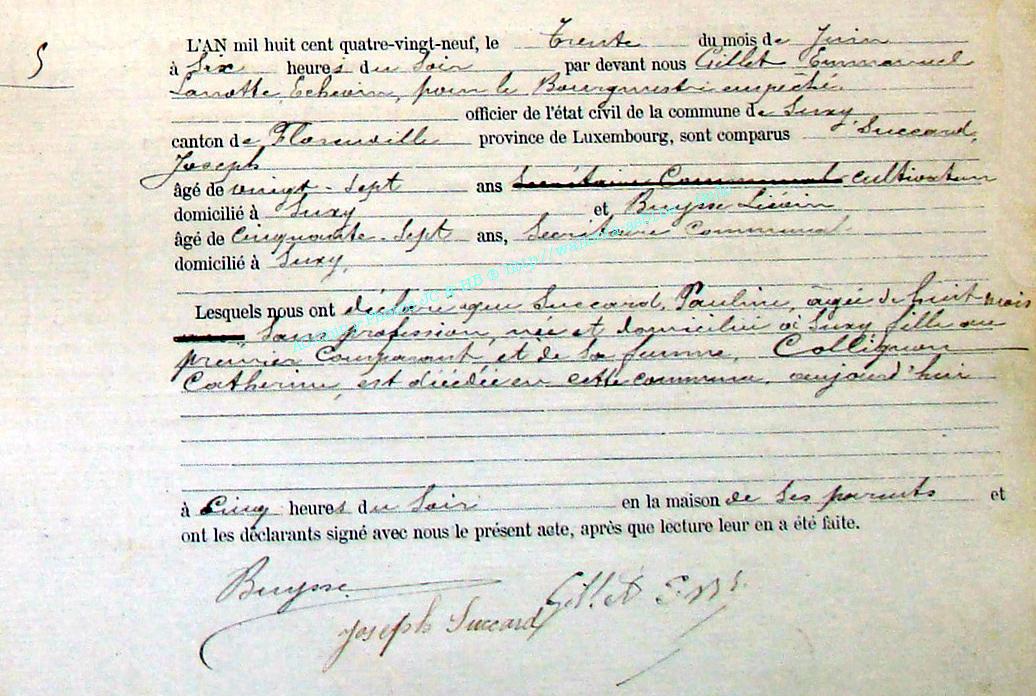 5
L'AN mil huit cent quatre-vingt-neuf, le Trente du mois de Juin
à Six heures du Soir par devant nous Gillet Emmanuel
Echevin, pour le Bourgmestre empêché
officier de l'état civil de la commune de Suxy
canton de Florenville province de Luxembourg, sont comparus Succard,
Joseph
âgé de vingt-Sept ans Secrétaire Communal cultivateur
domicilié à Suxy et Buysse Liévin
âgé de Cinquante-Sept ans, Secrétaire Communal
domicilié à Suxy,
Lesquels nous ont déclaré que Succard, Pauline, âgée de huit mois
Sans profession, née et domiciliée à Suxy, fille au
premier Comparant et de Sa femme, Collignon
Catherine, est décédée en cette commune, aujourd'hui
à Cinq heures du Soir en la maison de Ses parents et
ont les déclarants signé avec nous le présent acte, après que lecture leur en a été faite.
Buysse
Joseph Succard Gillet